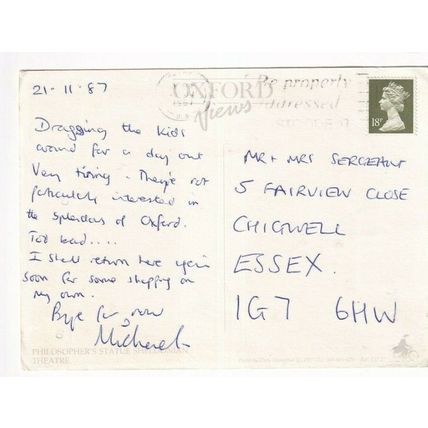 21-11-87
Dragging the kids
around for a day out
Very tiring - They're not
particularly interested in
the splendors of Oxford.
Too bad....
I shall return here again
soon for some shopping on
my own.
Bye for now
Michael
PHILOSOPHER'S STATUE SHELDONIAN
THEATRE
OXFORD
Views
Be properly
addressed
18P
MR + MRS SERGEANT
5 FAIRVIEW CLOSE
CHIGWELL
ESSEX.
IG7 6HW